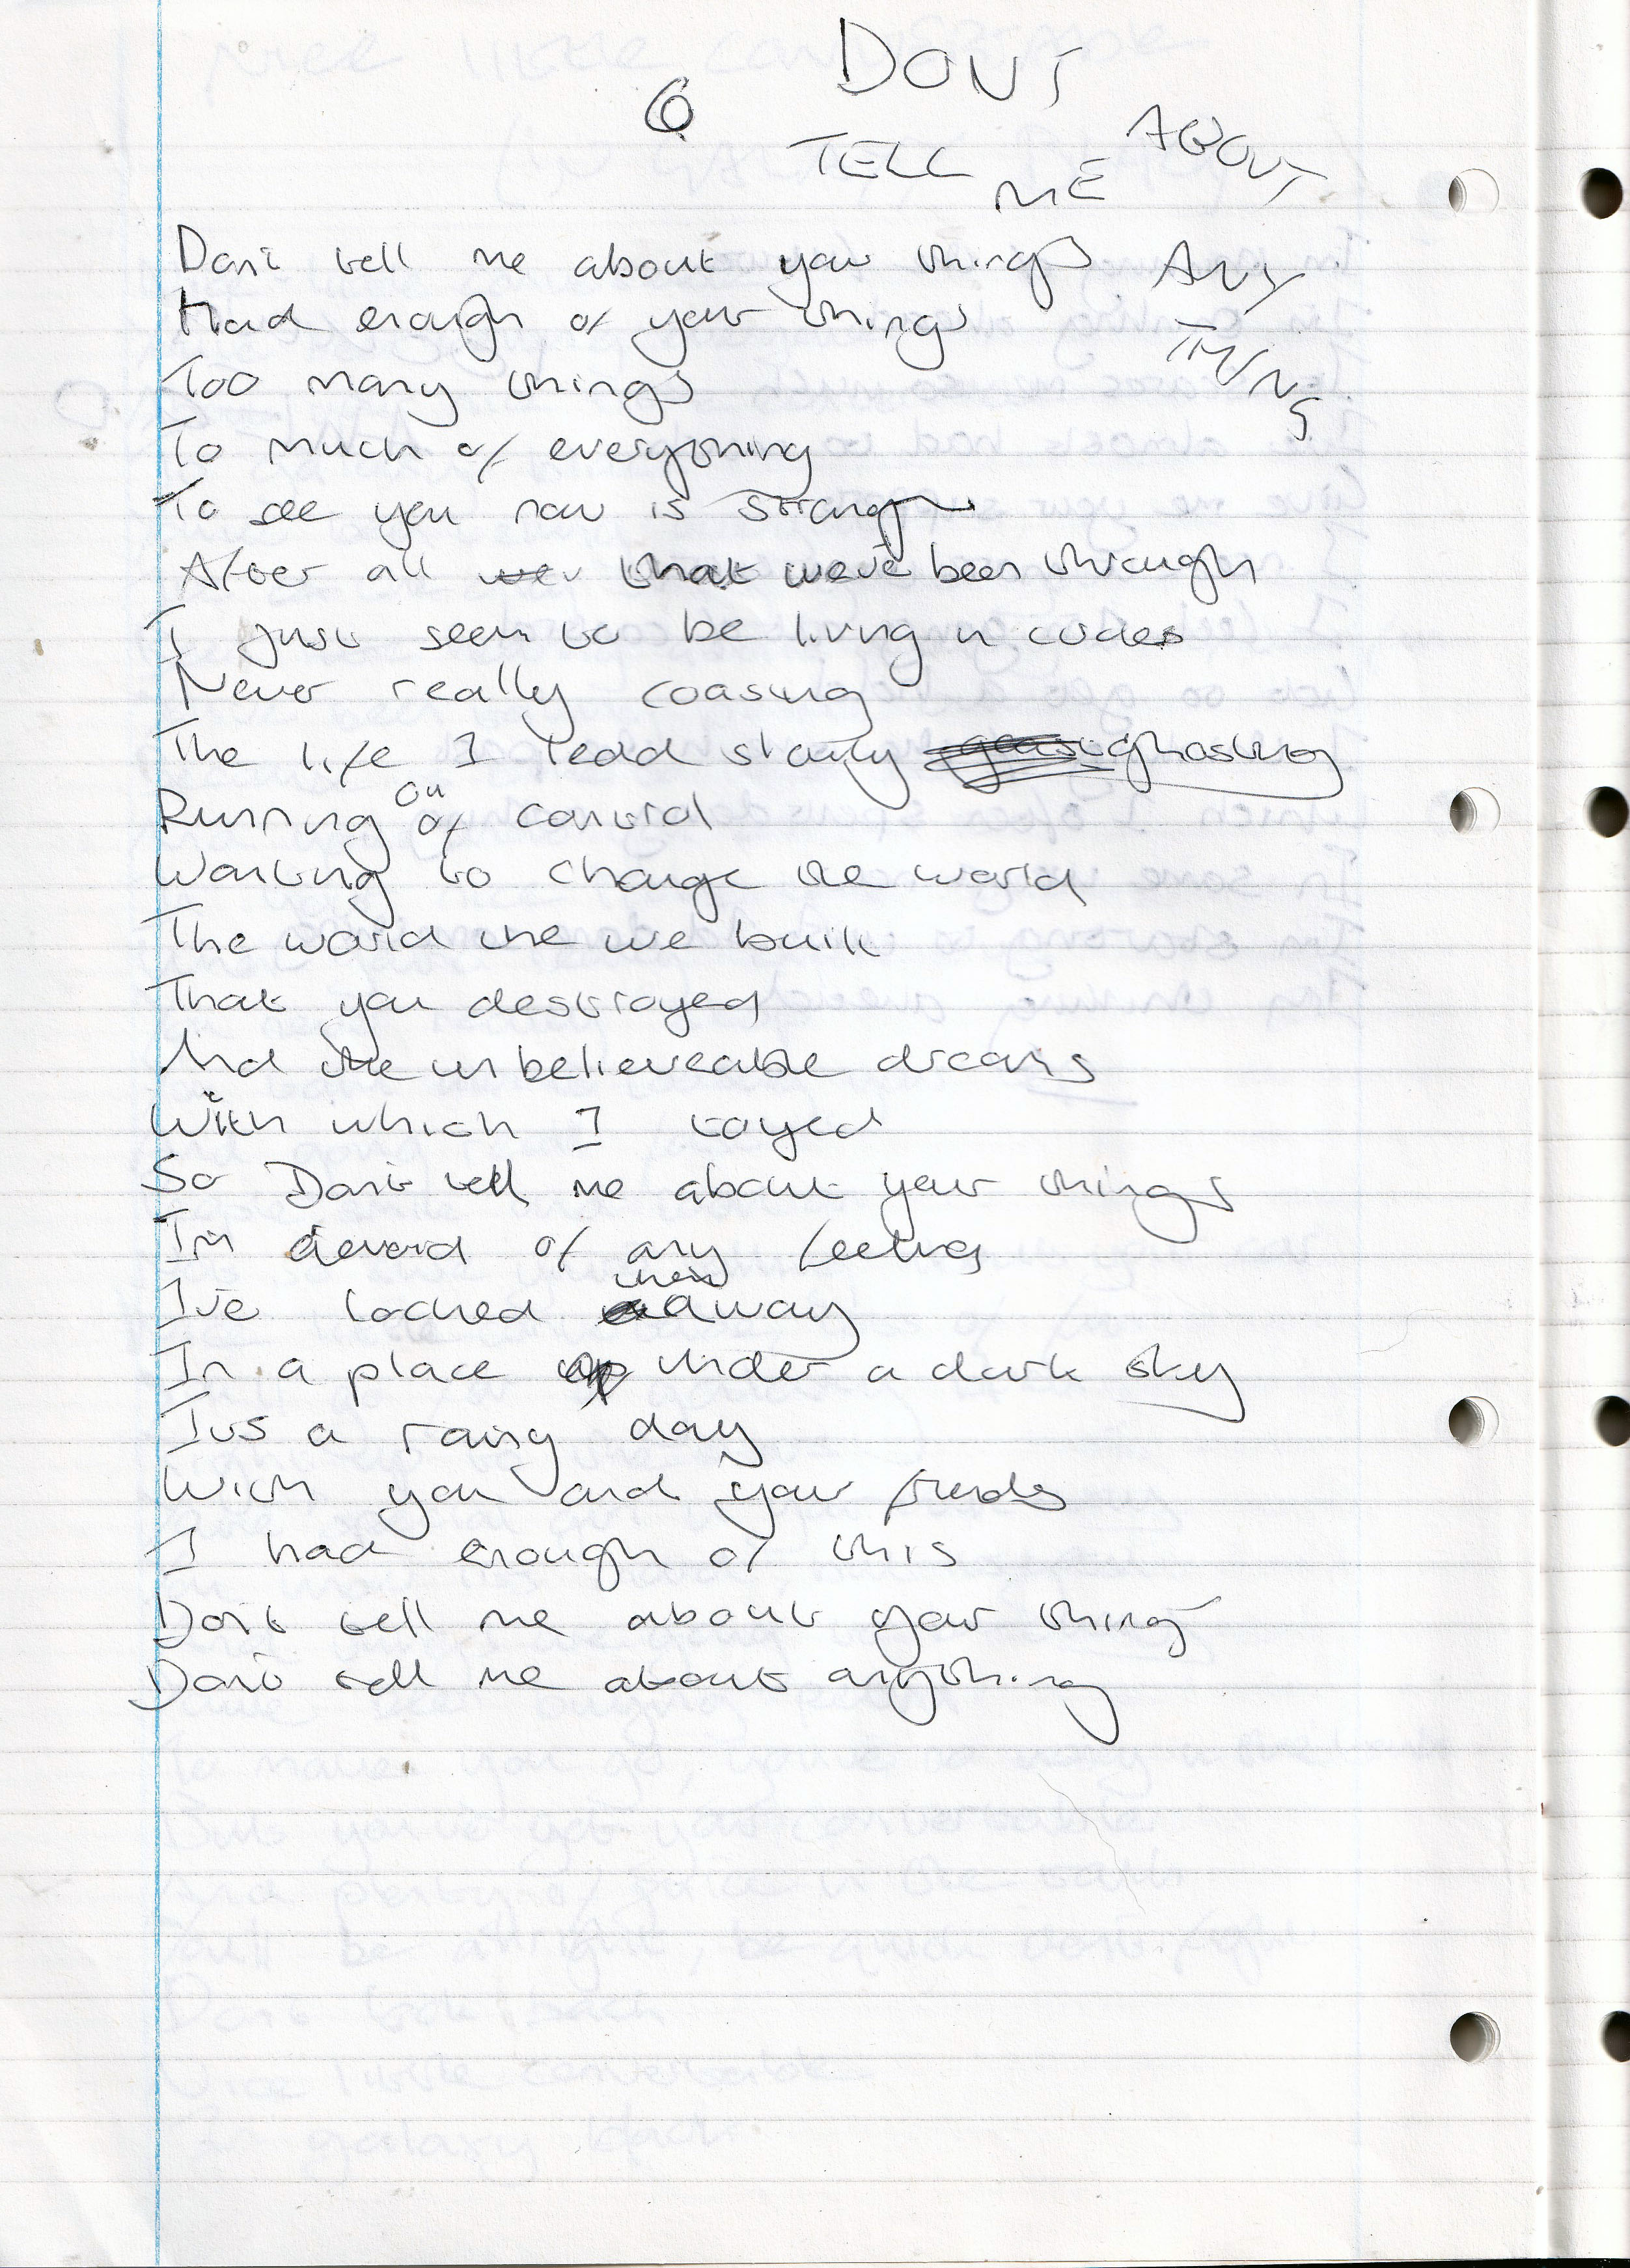 6
DONT
TELL ME ABOUT
ANY
THING
Don't tell me about your things
Had enough of your things
Too many things
To much of everything
To see you now is strange
After all that we've been through
I just seem to be living in codes
Never really coasting
The life I lead slowly ghosting
Running out of control
Wanting to change the world
The world the we built
That you destroyed
And the unbelieveable dreams
With which I toyed
So Don't tell me about your things
I'm devoid of any feeling
I've locked them away
In a place under a dark sky
Its a rainy day
With you and your friends
I had enough of this
Don't tell me about your things
Don't tell me about anything